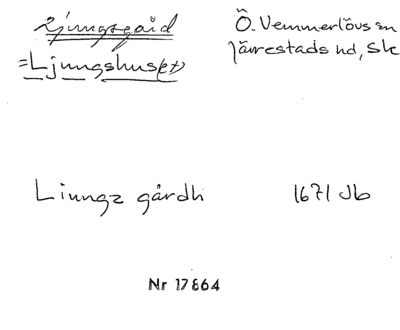 Ljungsgård
Ö. Vemmerlövs sn
=Ljungshus(et)
Järrestads hd, Sk
Liungz gårdh
1671 Jb
Nr 17864